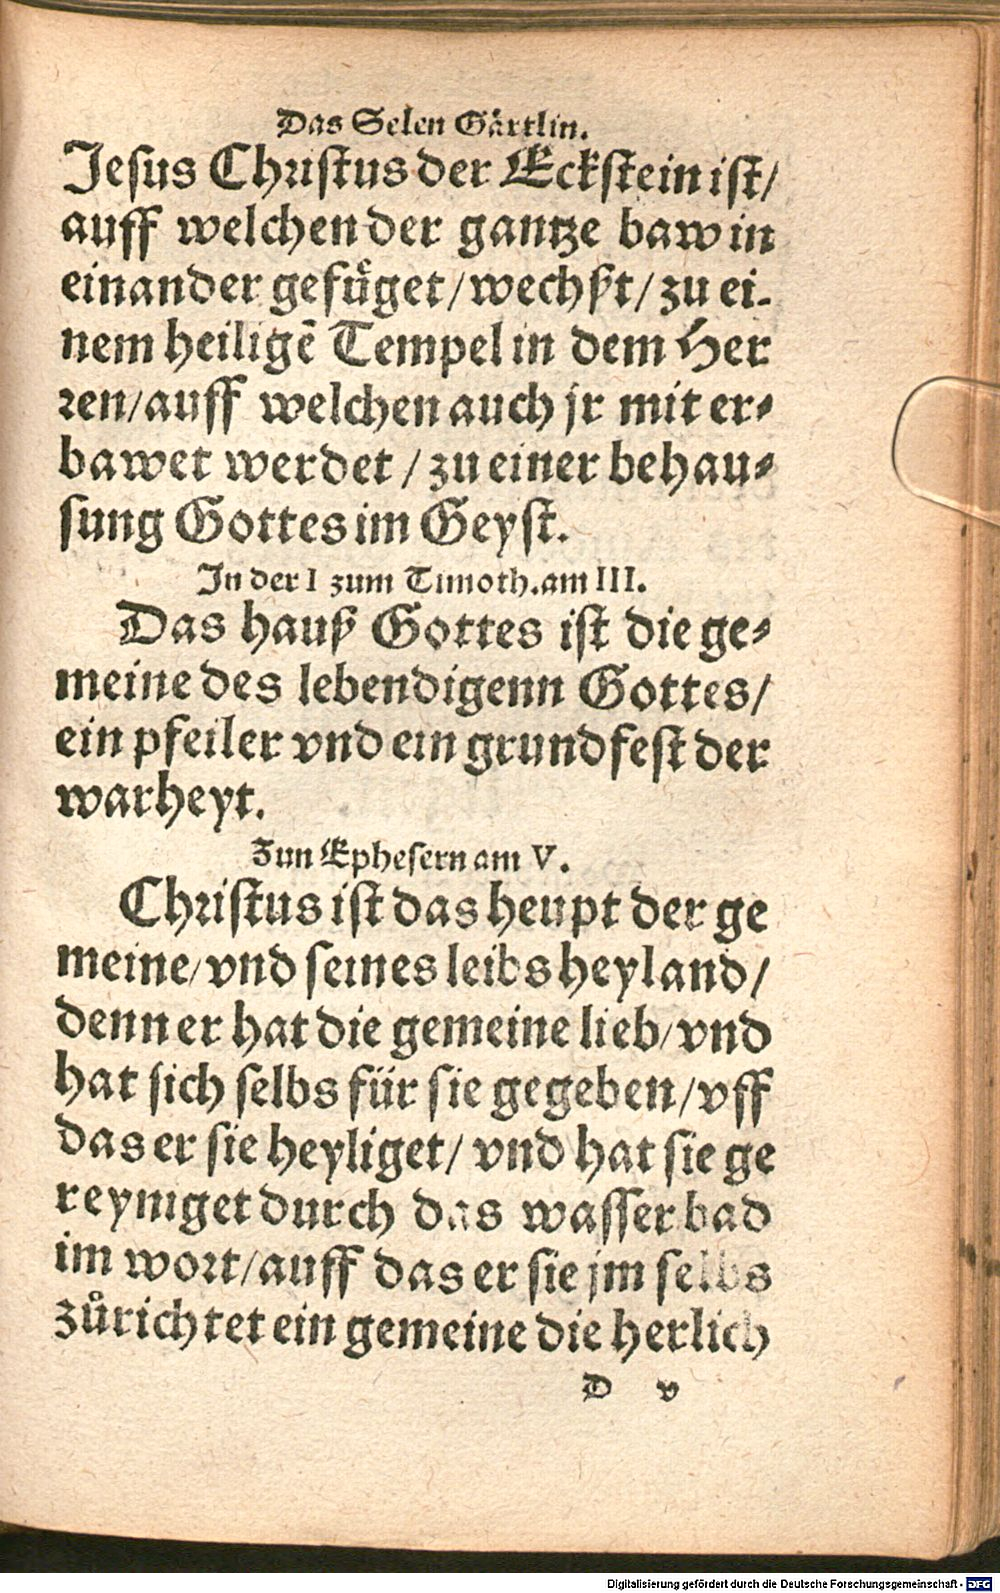 Das Selen Gärtlin.
Jesus Christus der Eckstein ist/
auff welchen der gantze baw in
einander gefüget/wechßt/zu ei-
nem heiligē Tempel in dem Her
ren/auff welchen auch jr mit er-
bawet werdet/zu einer behau-
sung Gottes im Geyst.
In der I zum Timoth. am III.
Das hauß Gottes ist die ge-
meine des lebendigenn Gottes/
ein pfeiler vnd ein grundfest der
warheyt.
Zun Ephesern am V.
Christus ist das heupt der ge
meine/vnd seines leibs heyland/
denn er hat die gemeine lieb/vnd
hat sich selbs für sie gegeben/vff
das er sie heyliget/vnd hat sie ge
reyniget durch das wasserbad
im wort/auff das er sie jm selbs
zůrichtet ein gemeine die herlich
D v
Digitalisierung gefördert durch die Deutsche Forschungsgemeinschaft - DFG